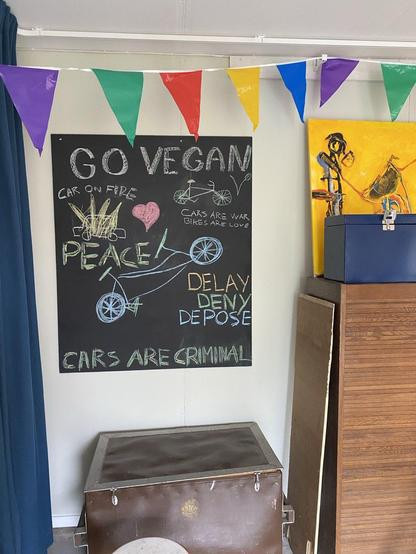 GO VEGAN
CAR ON FIRE
CARS ARE WAR
BIKES ARE LOVE
PEACE!
DELAY
DENY
DEPOSE
CARS ARE CRIMINAL